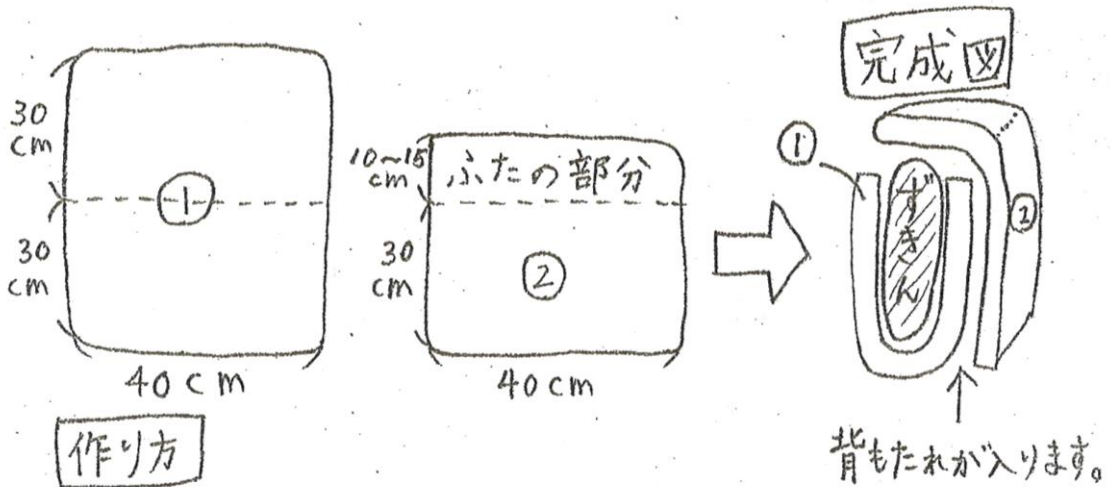 30
cm
30
cm
①
40cm
10~15
cm
ふたの部分
30
cm
②
40cm
完成図
①
ずきん
②
背もたれが入ります。
作り方